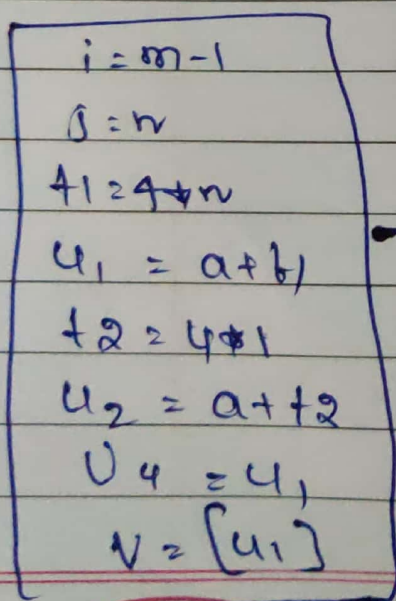 i = m-1
j = n
t1 = 4*n
u1 = a+b1
t2 = 4*1
u2 = a+t2
U4 = u1
v = [u1]